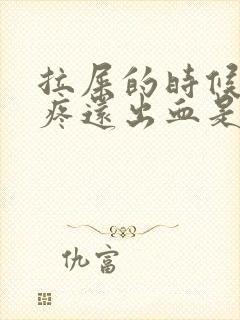 拉屎的時候
疼還出血是
仇富